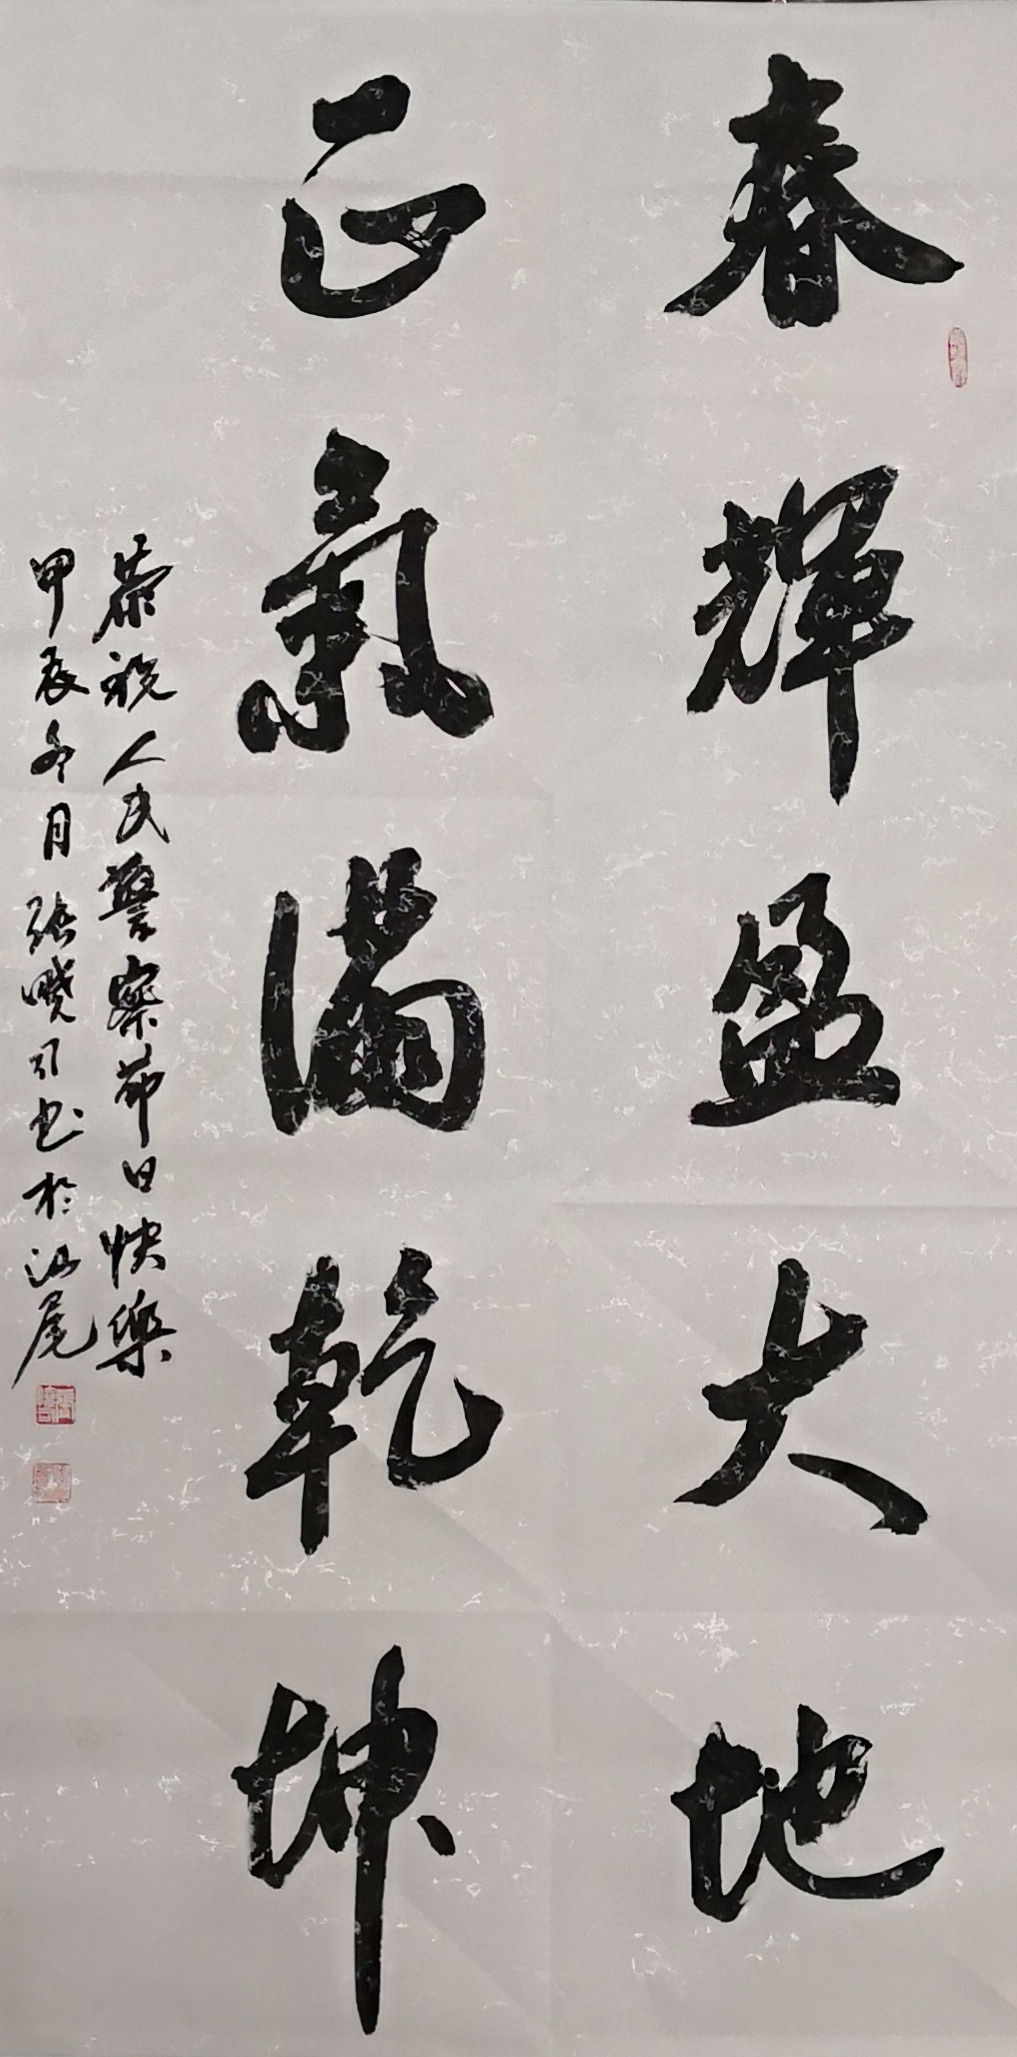 春輝盈大地
正氣滿乾坤
恭祝人民警察節日快樂
甲辰冬月張曉引书於汕尾